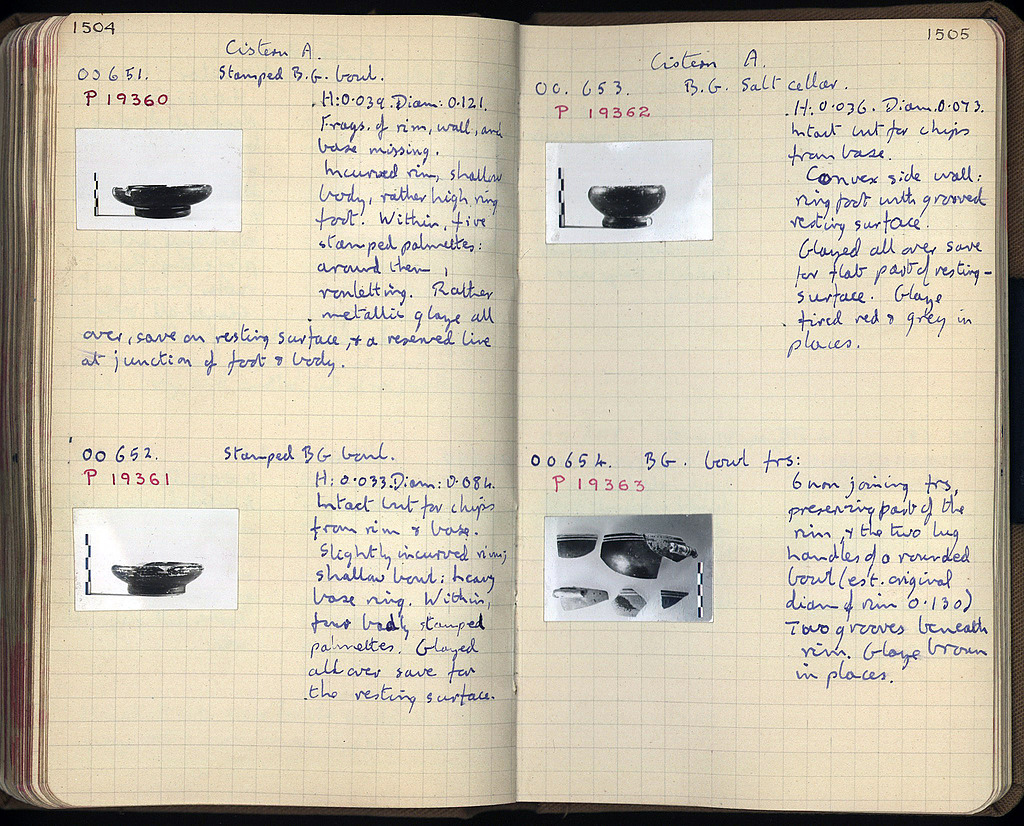 1504
Cistern A.
OO 651. Stamped B.G. bowl.
P 19360
H: 0.039. Diam: 0.121.
Frags. of rim, wall, and
base missing.
Incurved rim, shallow
body, rather high ring
foot. Within, five
stamped palmettes:
around them,
rouletting. Rather
metallic glaze all
over, save on resting surface, & a reserved line
at junction of foot & body.
OO 652. Stamped BG bowl.
P 19361
H: 0.033. Diam: 0.084.
Intact but for chips
from rim & base.
Slightly incurved rim;
shallow bowl: heavy
base ring. Within,
four badly stamped
palmettes. Glazed
all over save for
the resting surface.
1505
Cistern A.
OO. 653. B.G. Salt cellar.
P 19362
H: 0.036. Diam. 0.073.
Intact but for chips
from base.
Convex side wall:
ring foot with grooved
resting surface.
Glazed all over save
for flat part of resting-
surface. Glaze
fired red & grey in
places.
OO 654. BG. bowl frs:
P 19363
6 non joining frs,
preserving part of the
rim, & the two lug
handles of a rounded
bowl (est. original
diam of rim 0.130)
Two grooves beneath
rim. Glaze brown
in places.